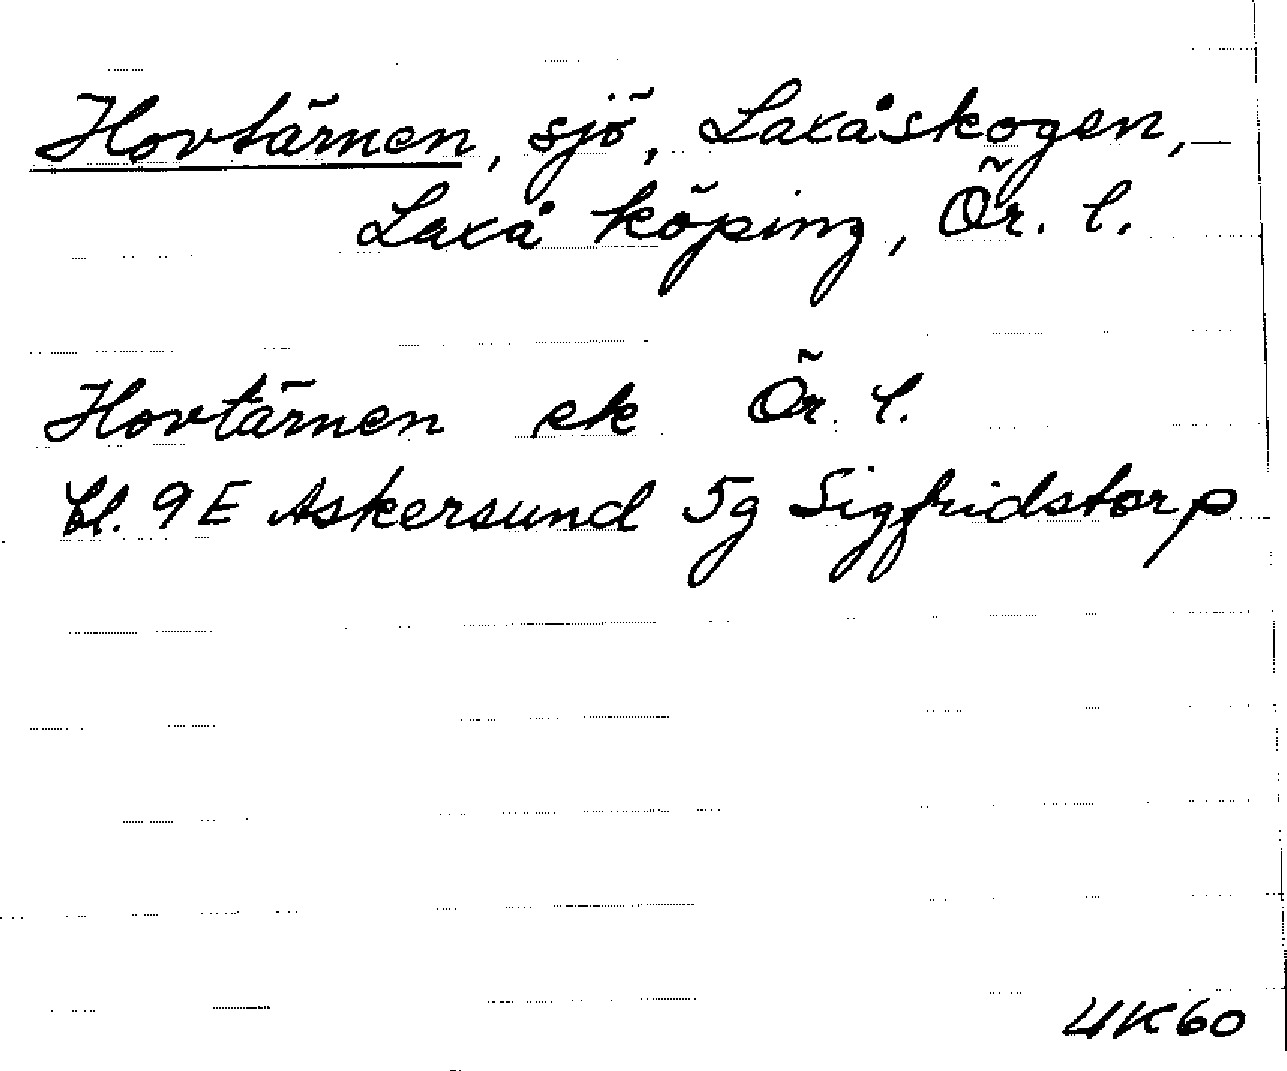 Hovtärnen, sjö, Laxåskogen,
Laxå köping, Ör. l.
Hovtärnen ek Ör. l.
bl. 9 E Askersund 5g Sigfridstorp
4K60